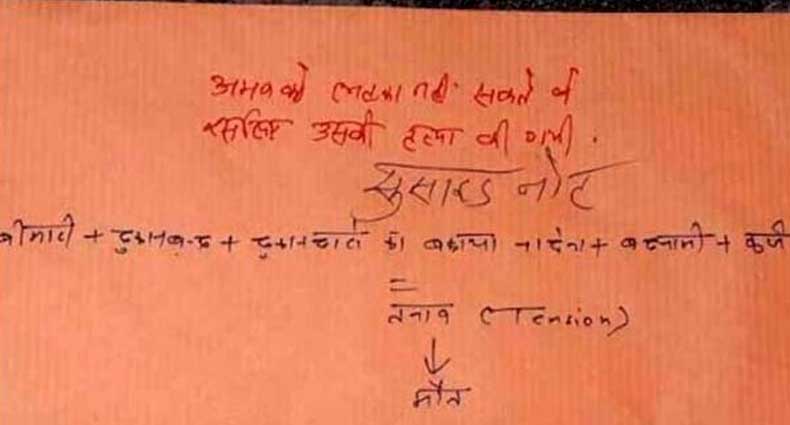 अमन को लटका नहीं सकते थे
इसलिए उसकी हत्या की गयी.
सुसाइड नोट
बीमारी + दुकान बन्द + दुकानदारो का बकाया ना देना + बदनामी + कर्ज
=
तनाव (Tension)
↓
मौत